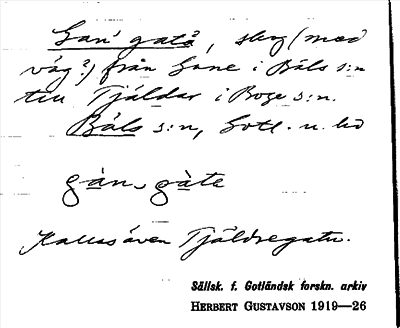 Gan'gatå, skog (med
väg?) från Gane i Bäls s:n
till Tjäldar i Boge s:n.
Bäls s:n, Gotl. n. hd
gàn, gàte
Kallas även Tjäldregatu.
Sällsk. f. Gotländsk forskn. arkiv
HERBERT GUSTAVSON 1919—26